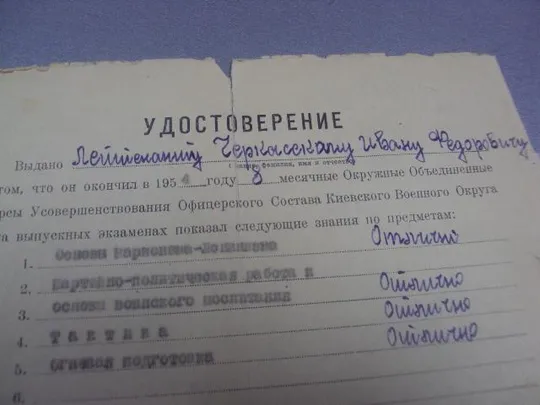 УДОСТОВЕРЕНИЕ
Выдано Лейтенанту Черкасскому Ивану Федоровичу
фамилия, имя и отчество
том, что он окончил в 1954 году 8 месячные Окружные Объединенные
рсы Усовершенствования Офицерского Состава Киевского Военного Округа
на выпускных экзаменах показал следующие знания по предметам:
1. Основы марксизма-ленинизма Отлично
2. Партийно-политическая работа и Отлично
3. основы воинского воспитания Отлично
4. Тактика Отлично
5. Огневая подготовка
6.